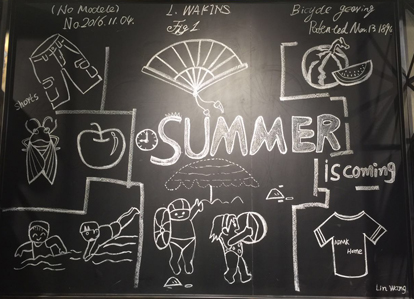 (No Modele)
No.2016.11.04.
L. WAKINS
Fig 1
Bicycle gearing
Patented Nov.13 1896
Shorts
SUMMER
is coming
Home
Lin Wang